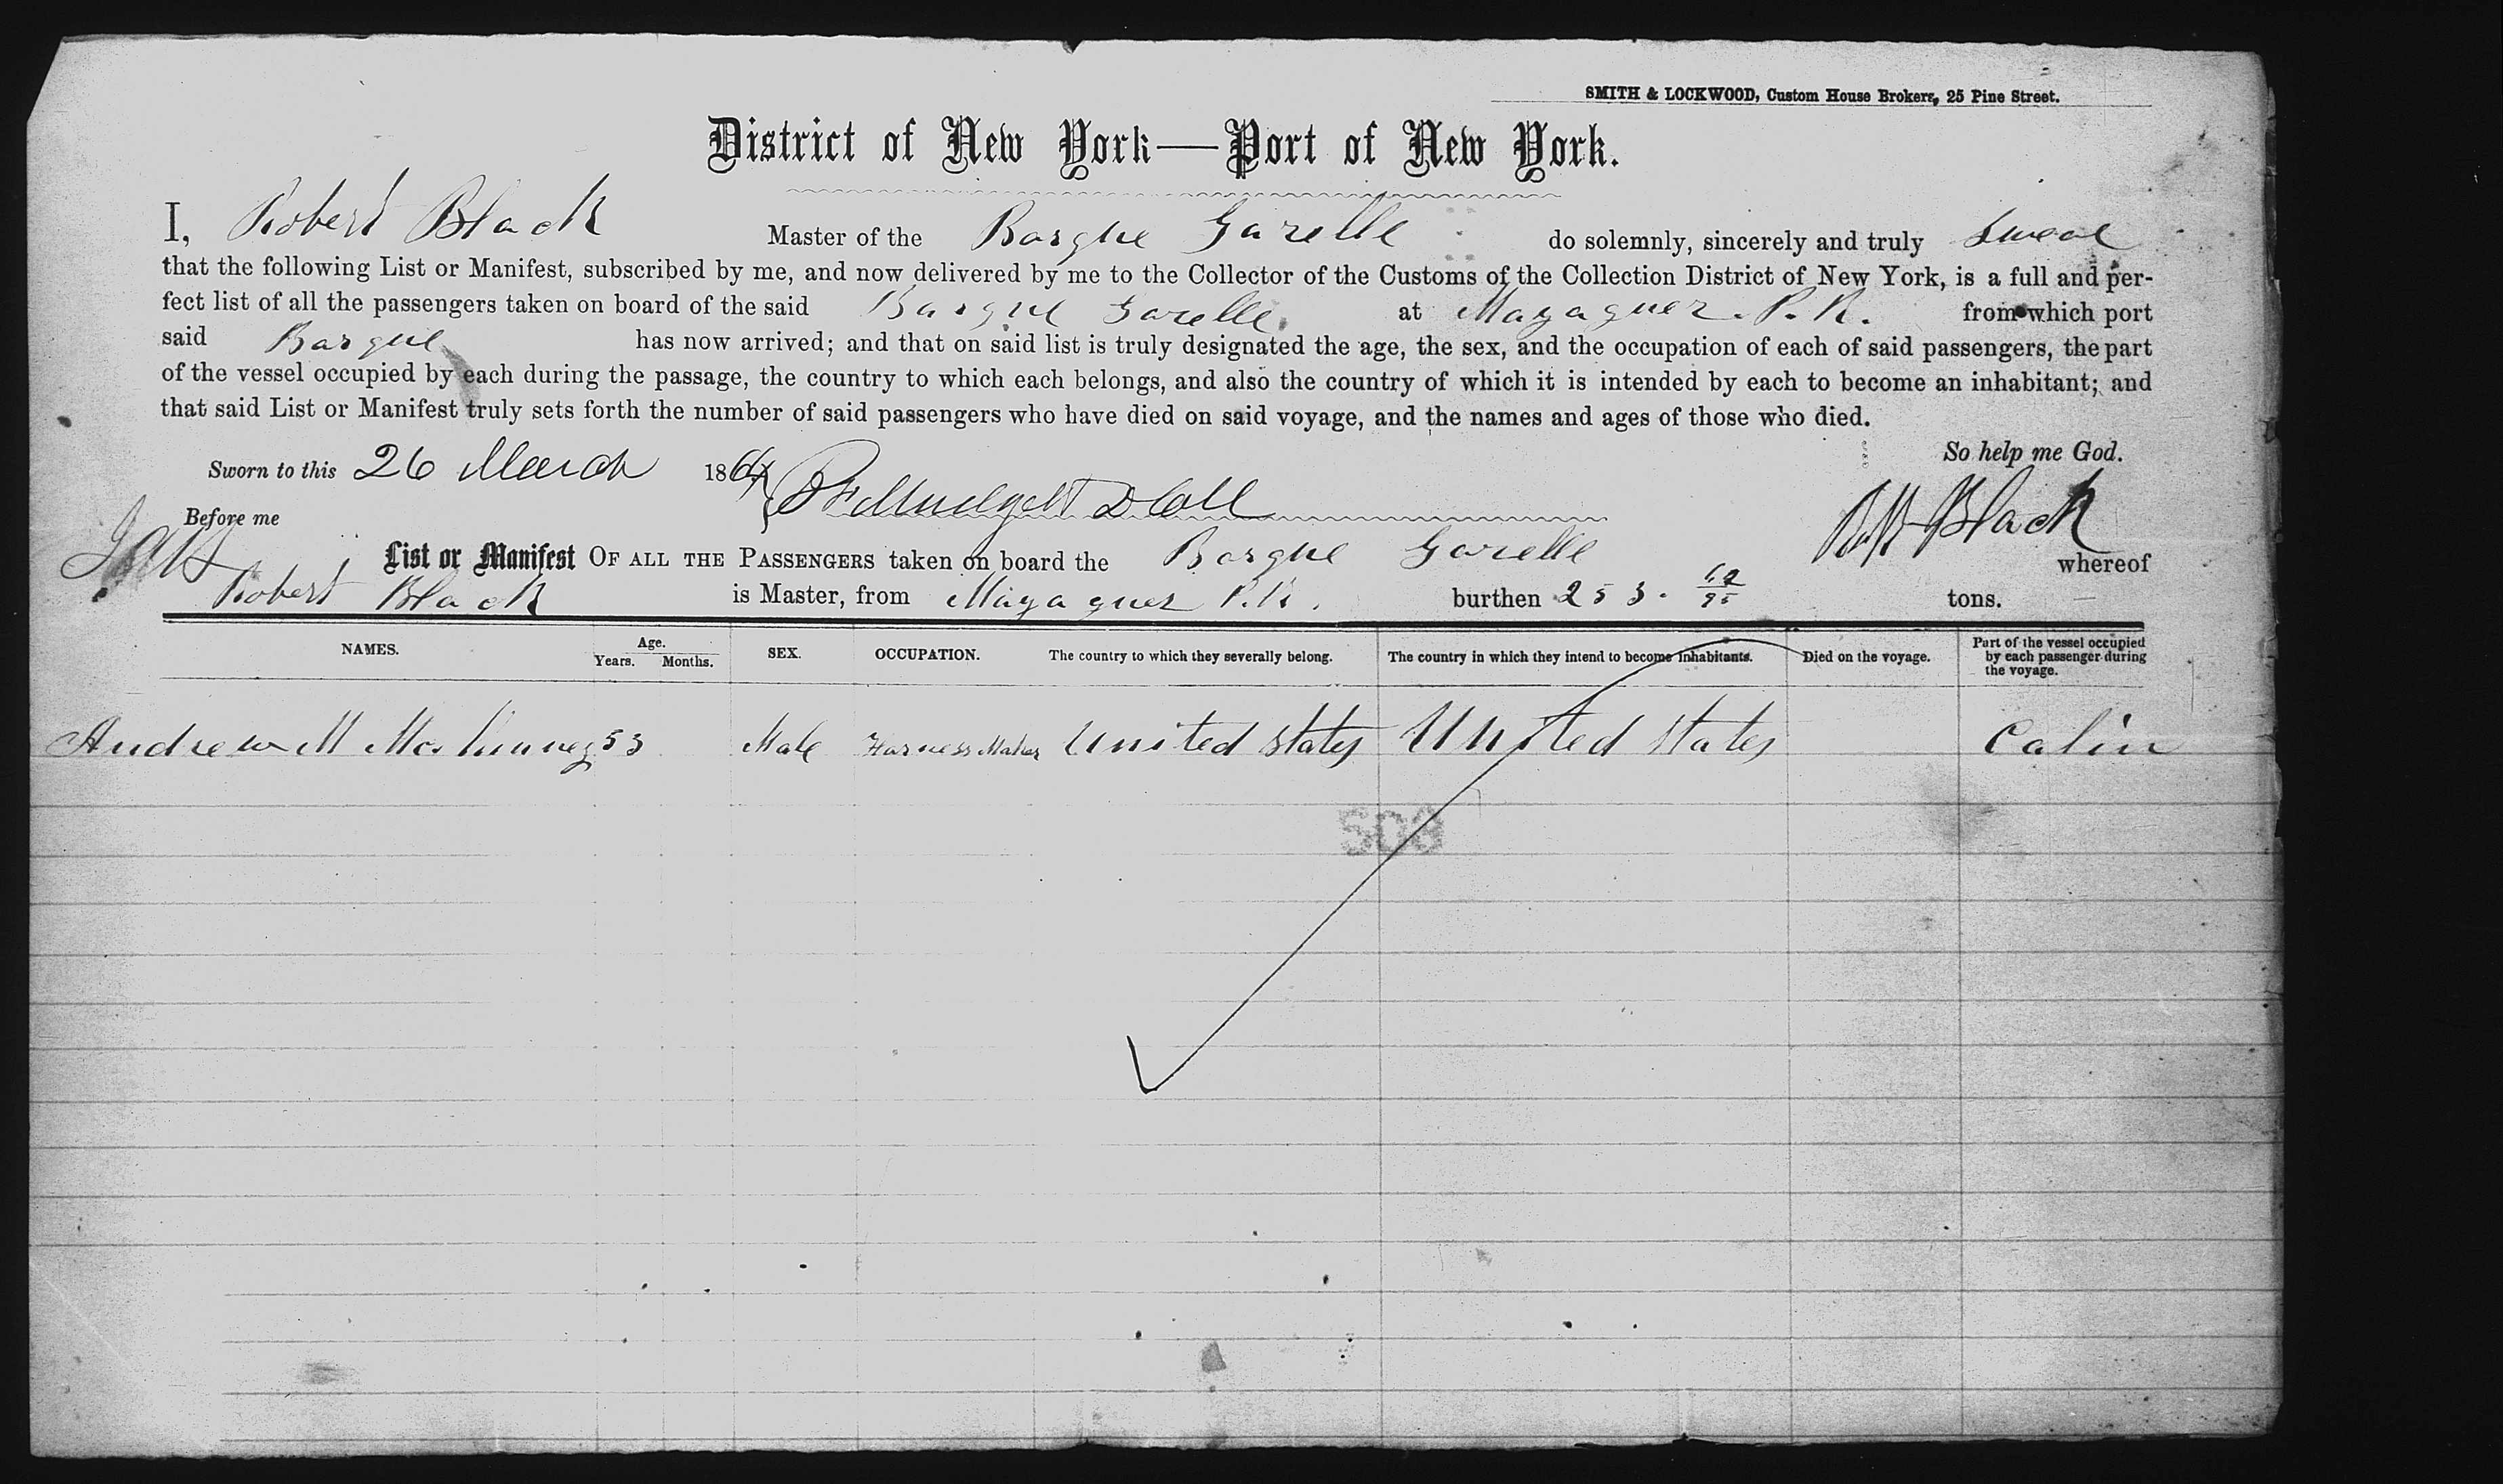 SMITH & LOCKWOOD, Custom House Brokers, 25 Pine Street.
District of New York—Port of New York.
I, Robert Black Master of the Barque Gazelle do solemnly, sincerely and truly Swear
that the following List or Manifest, subscribed by me, and now delivered by me to the Collector of the Customs of the Collection District of New York, is a full and per-
fect list of all the passengers taken on board of the said Barque Gazelle at Mayaguez. P.R. from which port
said Barque has now arrived; and that on said list is truly designated the age, the sex, and the occupation of each of said passengers, the part
of the vessel occupied by each during the passage, the country to which each belongs, and also the country of which it is intended by each to become an inhabitant; and
that said List or Manifest truly sets forth the number of said passengers who have died on said voyage, and the names and ages of those who died.
So help me God.
Sworn to this 26 March 186
Before me Black
List or Manifest OF ALL THE PASSENGERS taken on board the Barque Gazelle whereof
Robert Black is Master, from Mayaguez P.R. burthen 253. tons.
NAMES. Age. Years. Months. SEX. OCCUPATION. The country to which they severally belong. The country in which they intend to become inhabitants. Died on the voyage. Part of the vessel occupied by each passenger during the voyage.
Andrew M 53 Male Harness Maker United States United States Cabin